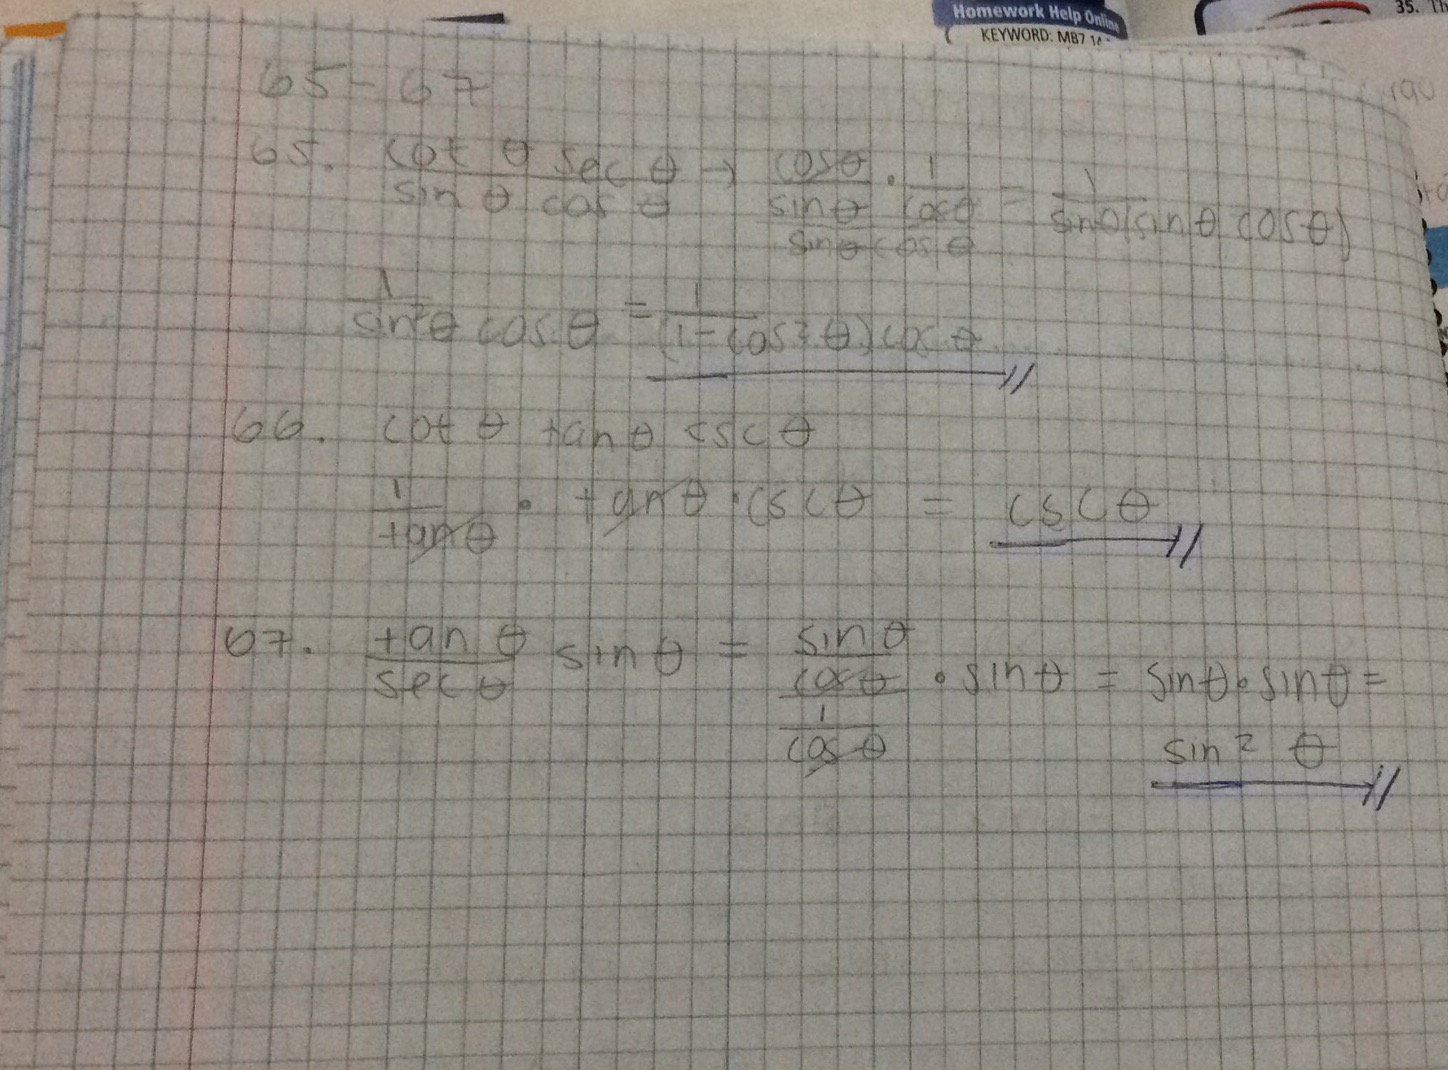 Homework Help Online
KEYWORD: MB7 14
35. Th
65-67
65. cot θ sec θ / sin θ cos θ → cosθ / sinθ · 1 / cosθ / sinθ cos θ = 1 / sinθ(sin θ cosθ)
1 / sin²θ cos θ = 1 / (1-cos²θ) cos θ
66. cot θ tan θ csc θ
1 / tan θ · tan θ · csc θ = csc θ
67. tan θ / sec θ sin θ = sin θ / cos θ / 1 / cos θ · sin θ = sin θ · sin θ =
sin² θ